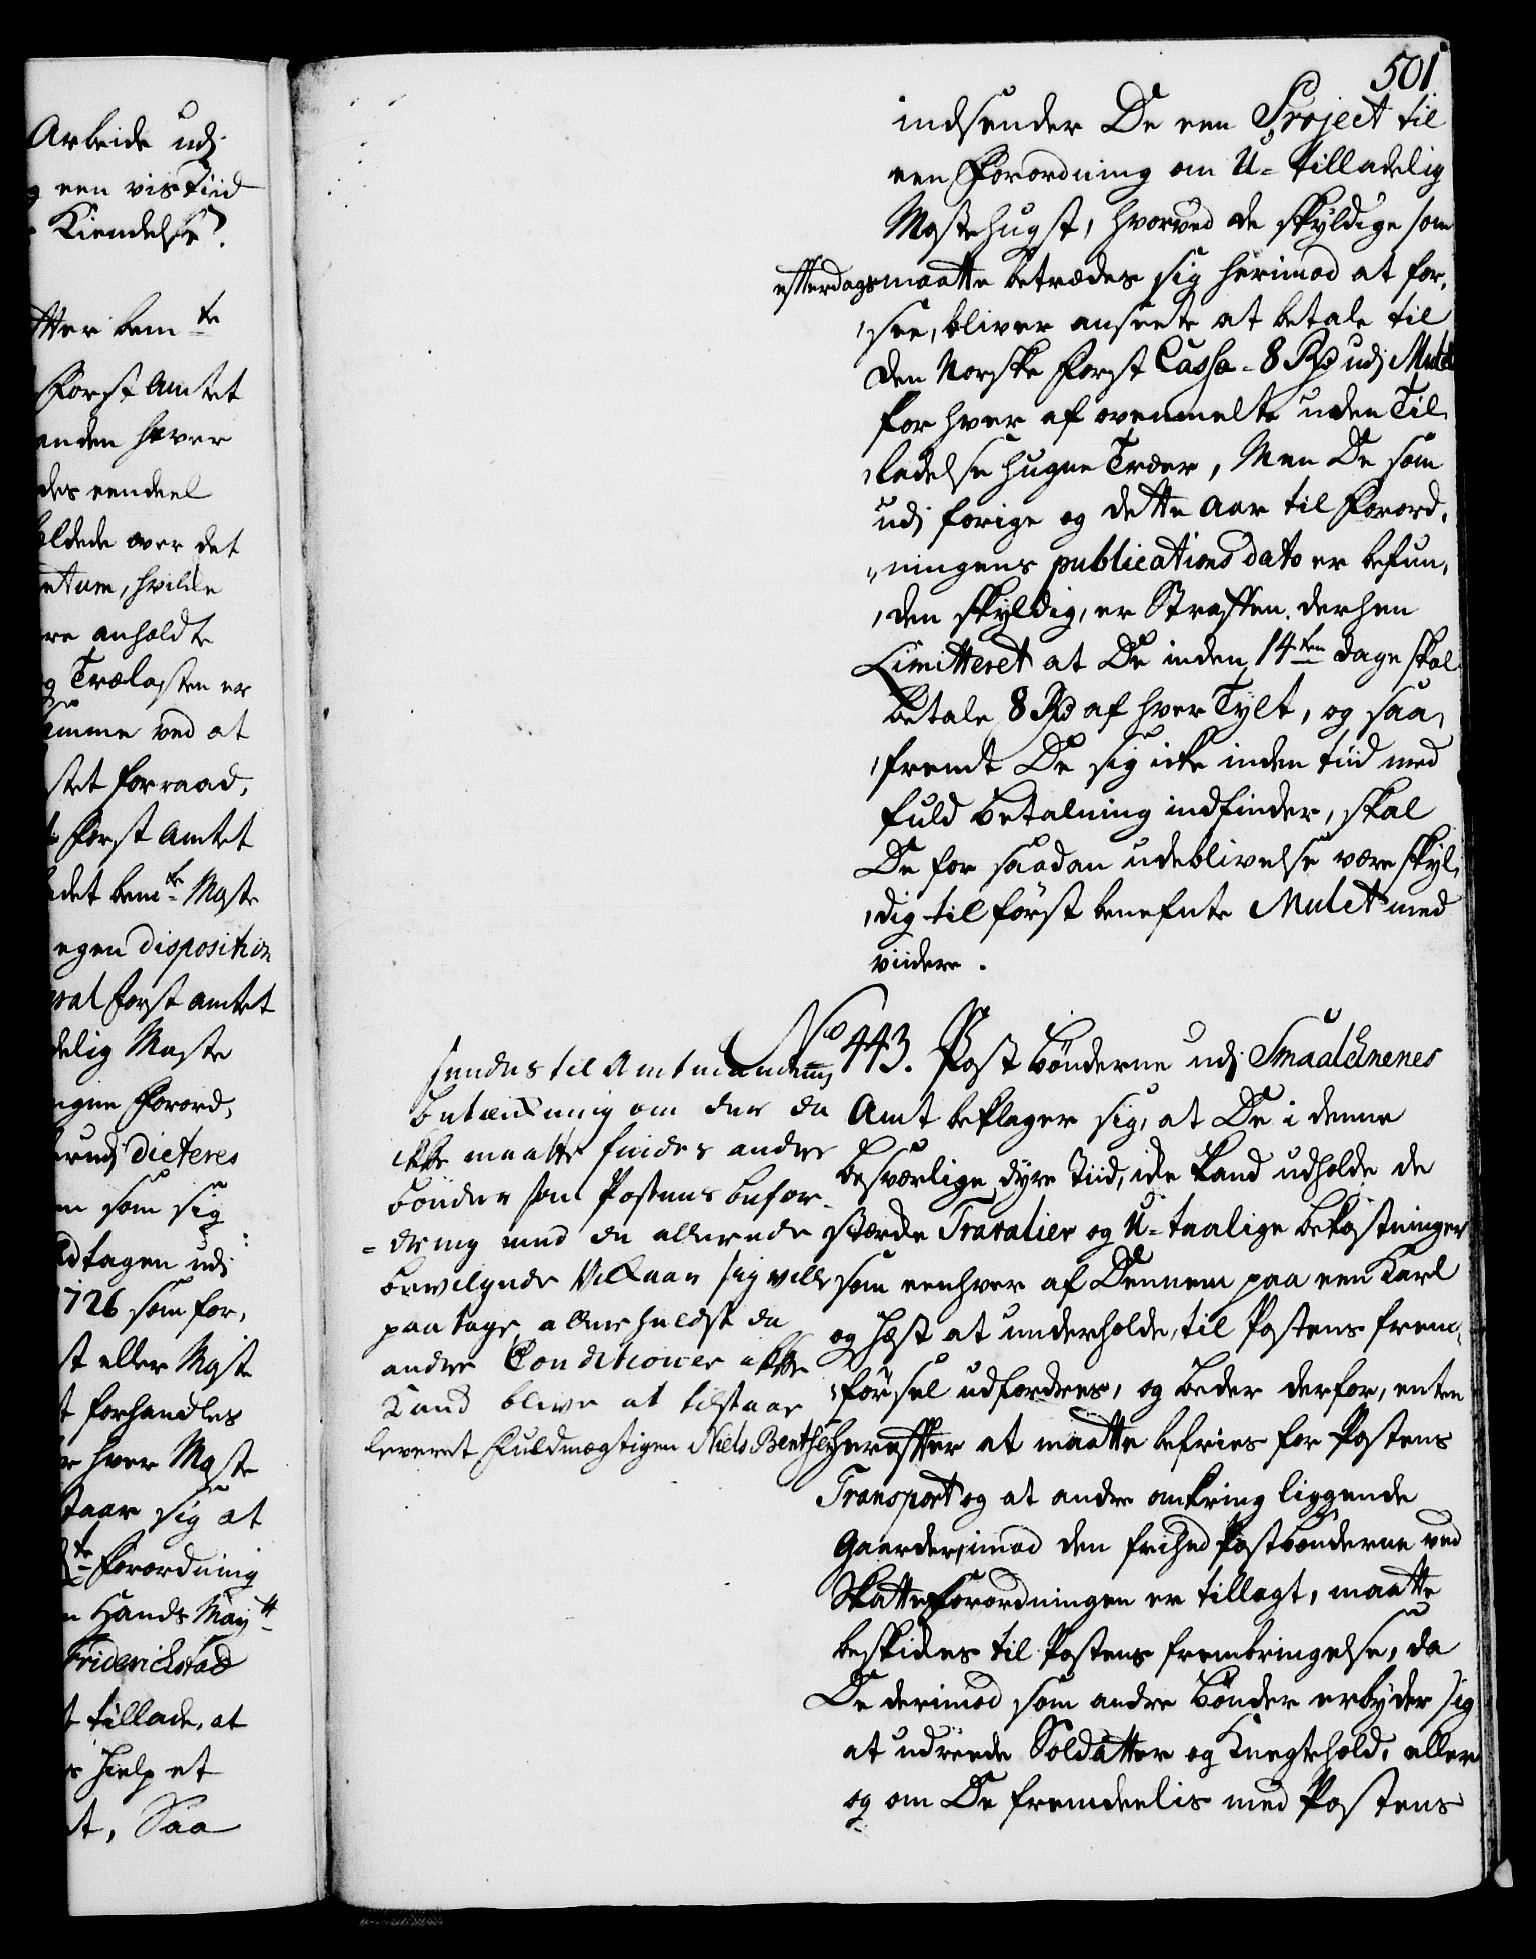 Arbeide udj
g een vis Tiid
Kiendelse.
tter bemte
Forst Amtet
anden hver
des eendeel
oldede over det
etum, hvilcke
re anholdte
g Trælasten er
amme ved at
stet forraad,
Forst Amtet
adet bemte Maste
egen disposition
ral Forst Amtet
delig Maste
egne Forord,
erudj dicteres
en som sig
dtagen udj
1726 som for,
st eller Mast
t forhandles
r hver Maste
staar sig at
te Forordning
n Hands Maytt
Friderichstad
t tillade, at
s hielp et
dt, Saa
501
indsender De een Project til
een Forordning om U-tilladelig
Mastehugst, hvorved de skyldige som
effterdags maatte betrædes sig herimod at for,
see, bliver anseete at betale til
den Norske Forst Cassa - 8 Rd udj Mulct
for hver af ovenmelte uden Til,
ladelse hugne Træer, Men De som
udj forige og dette Aar til Forord,
ningens publications dato er befun,
den skyldig, er Straffen derhen
Limitteret at De inden 14ten dage skal
betale 8 Rd af hver Tylt, og saa,
fremt De sig icke inden tiid med
fuld betalning indfinder, skal
De for saadan udeblivelse være skyl,
dig til först benefnte Mulct med
viidere.
No 443. Post bönderne udj Smaalehnenes
Amt beklager sig, at De i denne
besværlige dyre Tiid, icke kand udholde de
stærcke Travalier og U-taalige bekostninger
som eenhver af Dennem paa een Karl
og Hæst at underholde, til Postens frem,
försel udfordres, og beder derfor, enten
hereffter at maatte befries for Postens
Transport og at andre omkring liggende
Gaarder, imod den friehed Postbönderne ved
Skatte Forordningen er tillagt, maatte
beskides til Postens frembringelse, da
De derimod som andre bönder erbyder sig
at udreede Soldatter og Knegtehold, eller
og om De fremdeelis med Postens
sendes til Amtmandens
betænckning om der da
ikke maatte findes andre
bönder som Postens befor-
-dring med de allerede
bevilgede Vilkaar sig ville
paatage, allerhelst da
andre Conditioner ikke
kand blive at tilstaae
leveret Fuldmægtigen Niels Benthe